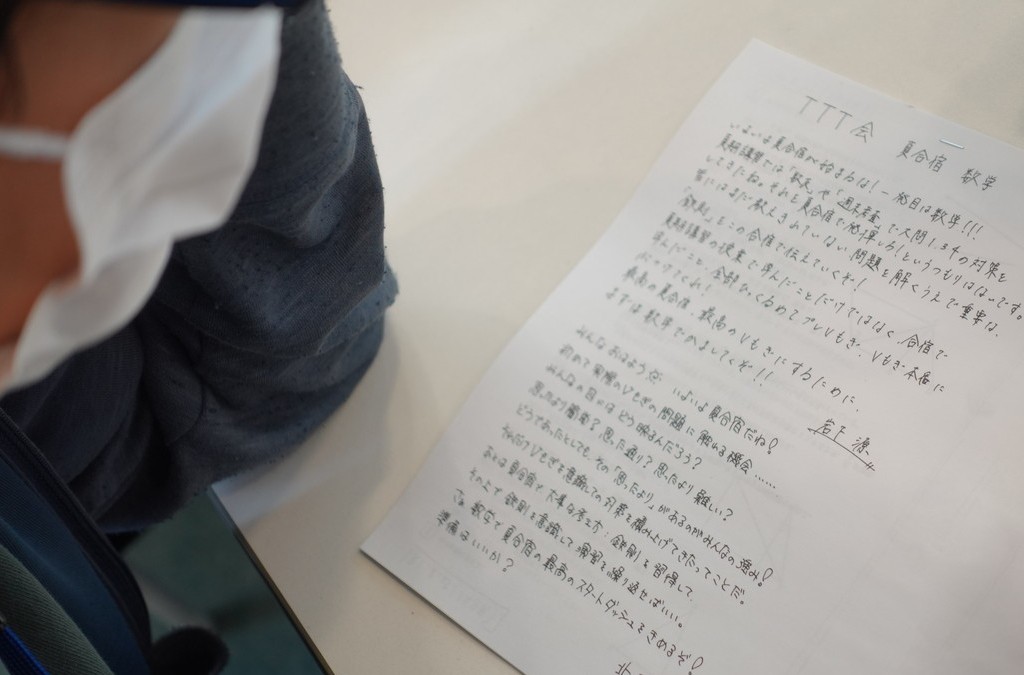 TTT会 夏合宿 数学
いよいよ夏合宿が始まるね!一発目は数学!!!
夏期講習では「数天」や「週末者査」で大問1.3.4の対策を
してきたね。それを夏合宿で発揮しろ!というつもりはないです。
皆にはまだ教えきれていない問題を解くうえで重要な、
「鉄則」をこの合宿で伝えていくぞ!
夏期講習の授業で学んだことだけではなく、合宿で
学んだこと、全部ひっくるめてプレVもぎ、Vもぎ本番に
ぶつけてくれ!
最高の夏合宿、最高のVもぎにするために、
まずは数学でかましてくぞ!!
岩下 源
みんなおはよう いよいよ夏合宿だね!
初めて実際のVもぎの問題に触れる機会……
みんなの目にはどう映るんだろう?
思ったより簡単?思った通り?思ったより難しい?
どうであったとしても、その「思ったより」があるのがみんなの強み!
そのだけVもぎを意識しての対策を積み上げてきたってことだ。
あとは夏合宿で大事な考え方:鉄則を習得して、
その上で鉄則を意識して演習を繰り返せばいい。
さぁ、数学で夏合宿の最高のスタートダッシュをきめるぞ!
準備はいいか?
北